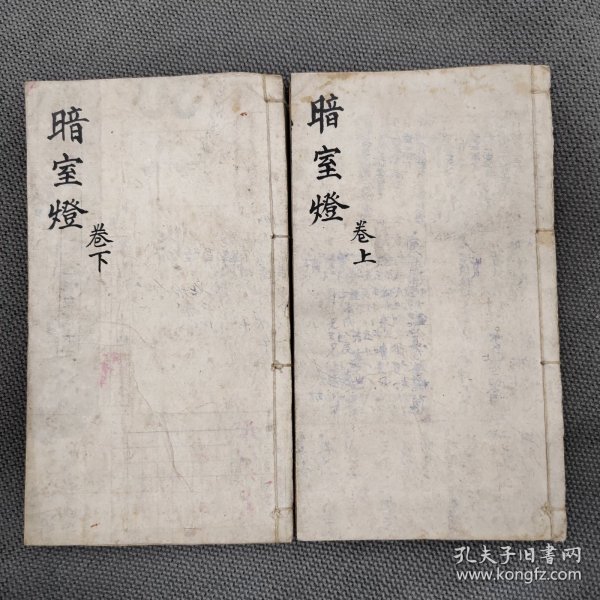 暗室燈
卷上
暗室燈
卷下
孔夫子旧书网
www.kongfz.com